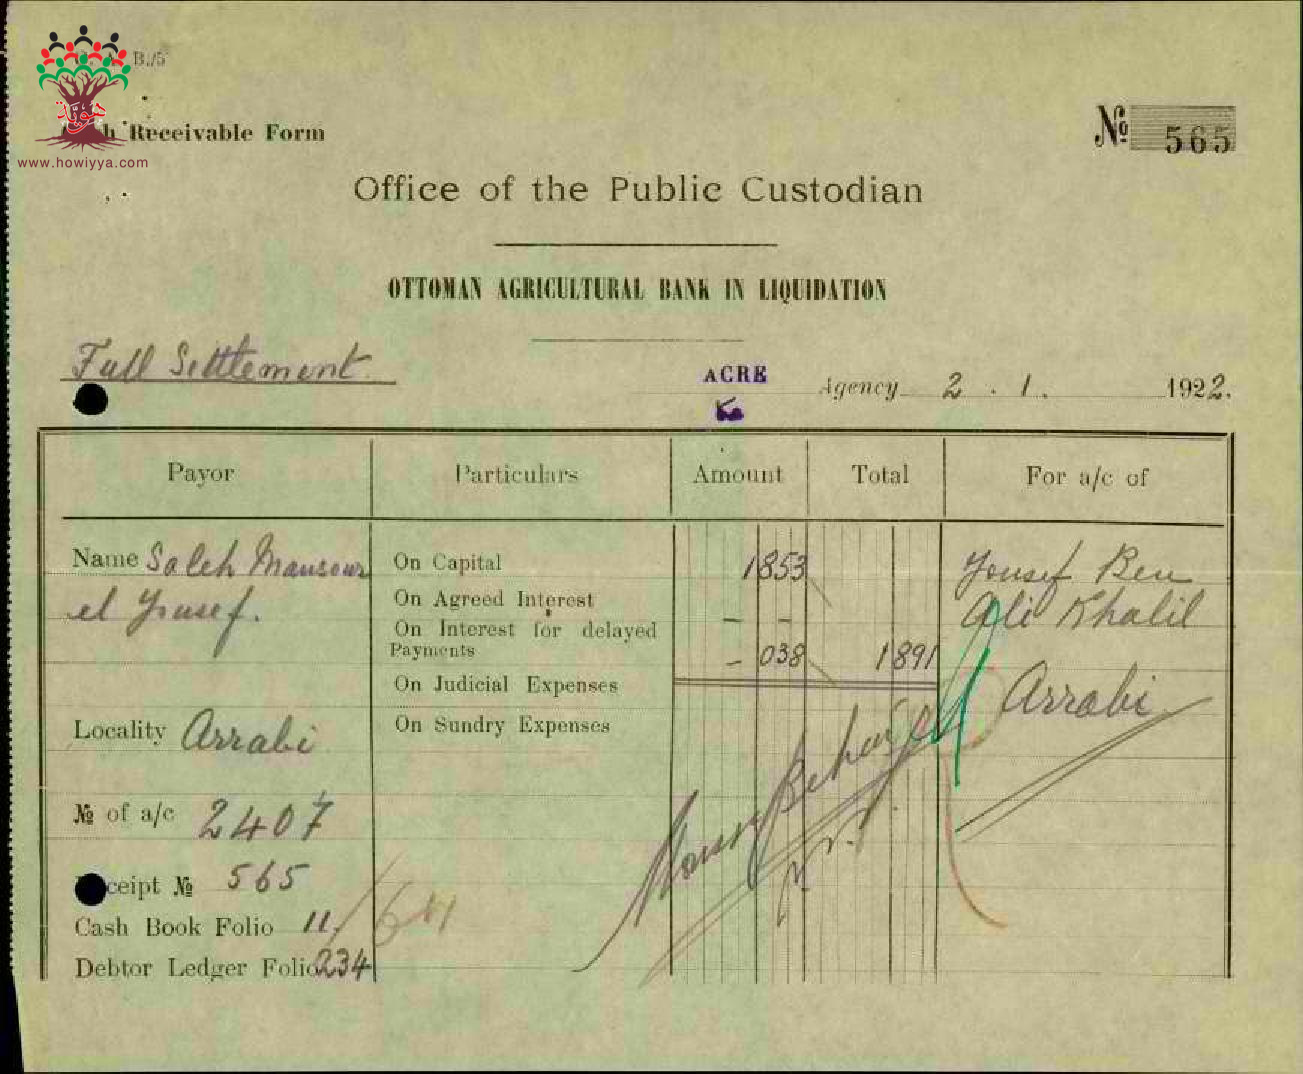 B./5
هوية
www.howiyya.com
Receivable Form
№ 565
Office of the Public Custodian
OTTOMAN AGRICULTURAL BANK IN LIQUIDATION
Full Settlement
ACRE Agency 2 . 1. 1922.
Payor Particulars Amount Total For a/c of
Name Saleh Mansour On Capital 1853 Yousef Ben
el Yousef. On Agreed Interest - - Ali Khalil
On Interest for delayed
Payments - 038 1891
On Judicial Expenses Arrabi
Locality Arrabi On Sundry Expenses
№ of a/c 2407
ceipt № 565
Cash Book Folio 11/
Debtor Ledger Folio 234